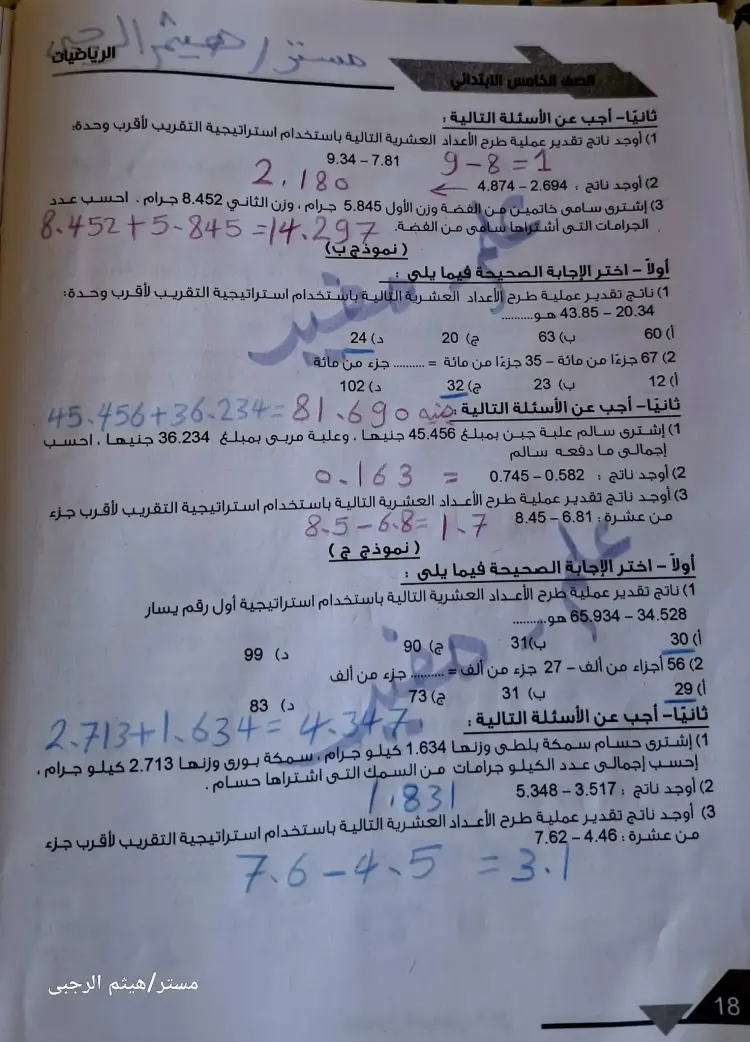 مستر / هيثم الرجبى
الرياضيات
الصف الخامس الابتدائي
ثانيًا – أجب عن الأسئلة التالية :
1) أوجد ناتج تقدير عملية طرح الأعداد العشرية التالية باستخدام استراتيجية التقريب لأقرب وحدة:
9.34 – 7.81
9 – 8 = 1
2) أوجد ناتج : 4.874 – 2.694 ← 2.180
3) إشترى سامى خاتمين من الفضة وزن الأول 5.845 جرام ، وزن الثاني 8.452 جرام . احسب عدد
الجرامات التى أشتراها سامى من الفضة.
8.452 + 5.845 = 14.297
( نموذج ب )
أولاً – اختر الإجابة الصحيحة فيما يلى :
1) ناتج تقدير عملية طرح الأعداد العشرية التالية باستخدام استراتيجية التقريب لأقرب وحدة:
43.85 – 20.34 هو..........
أ) 60 ب) 63 ج) 20 د) 24
2) 67 جزءًا من مائة – 35 جزءًا من مائة = .......... جزء من مائة
أ) 12 ب) 23 ج) 32 د) 102
ثانيًا – أجب عن الأسئلة التالية :
45.456 + 36.234 = 81.690 جنيه
1) إشترى سالم علبة جبن بمبلغ 45.456 جنيها ، وعلبة مربى بمبلغ 36.234 جنيها ، احسب
إجمالى ما دفعه سالم
2) أوجد ناتج : 0.745 – 0.582 = 0.163
3) أوجد ناتج تقدير عملية طرح الأعداد العشرية التالية باستخدام استراتيجية التقريب لأقرب جزء
من عشرة : 8.45 – 6.81
8.5 – 6.8 = 1.7
( نموذج ج )
أولاً – اختر الإجابة الصحيحة فيما يلى :
1) ناتج تقدير عملية طرح الأعداد العشرية التالية باستخدام استراتيجية أول رقم يسار
65.934 – 34.528 هو..........
أ) 30 ب) 31 ج) 90 د) 99
2) 56 أجزاء من ألف – 27 جزء من ألف = .......... جزء من ألف
أ) 29 ب) 31 ج) 73 د) 83
ثانيًا – أجب عن الأسئلة التالية :
2.713 + 1.634 = 4.347
1) إشترى حسام سمكة بلطى وزنها 1.634 كيلو جرام ، سمكة بورى وزنها 2.713 كيلو جرام ،
إحسب إجمالى عدد الكيلو جرامات من السمك التى اشتراها حسام .
2) أوجد ناتج : 5.348 – 3.517
1.831
3) أوجد ناتج تقدير عملية طرح الأعداد العشرية التالية باستخدام استراتيجية التقريب لأقرب جزء
من عشرة : 7.62 – 4.46
7.6 – 4.5 = 3.1
مستر/هيثم الرجبى
18